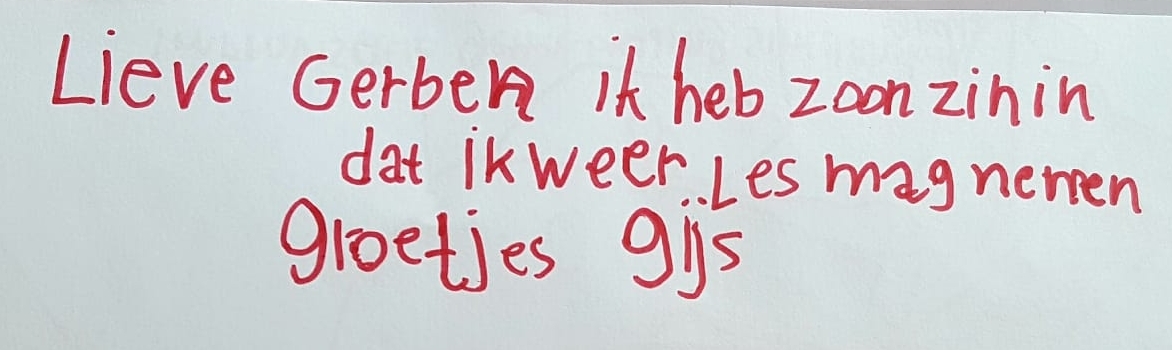 Lieve Gerben ik heb zoon zin in
dat ik weer Les mag nemen
groetjes gijs